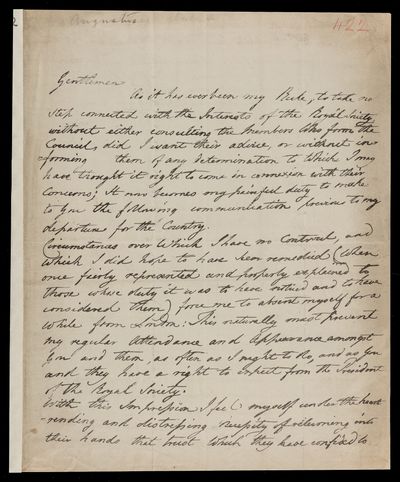 Augustus
422
Gentlemen
As it has ever been my Rule, to take no
step connected with the Interests of the Royal Society
without either consulting the Members who form the
Council, did I want their advice, or without in-
forming them of any Determination to Which I may
have thought it right to come in connexion with their
Concerns; It now becomes my painful duty to make
to You the following communication previous to my
departure for the Country.
Circumstances over Which I have no Controul, and
Which I did hope to have seen remedied (When
once fairly represented and properly explained to
those whose duty it was to have noticed and to have
considered them) force me to absent myself for a
While from London: This naturally must prevent
my regular Attendance and Appearance amongst
You and them, as often as I ought to do, and as You
and they have a right to expect from the President
of the Royal Society.
With this Impression I feel myself under the heart
rending and distressing necessity of returning into
their hands that trust Which they have confided to